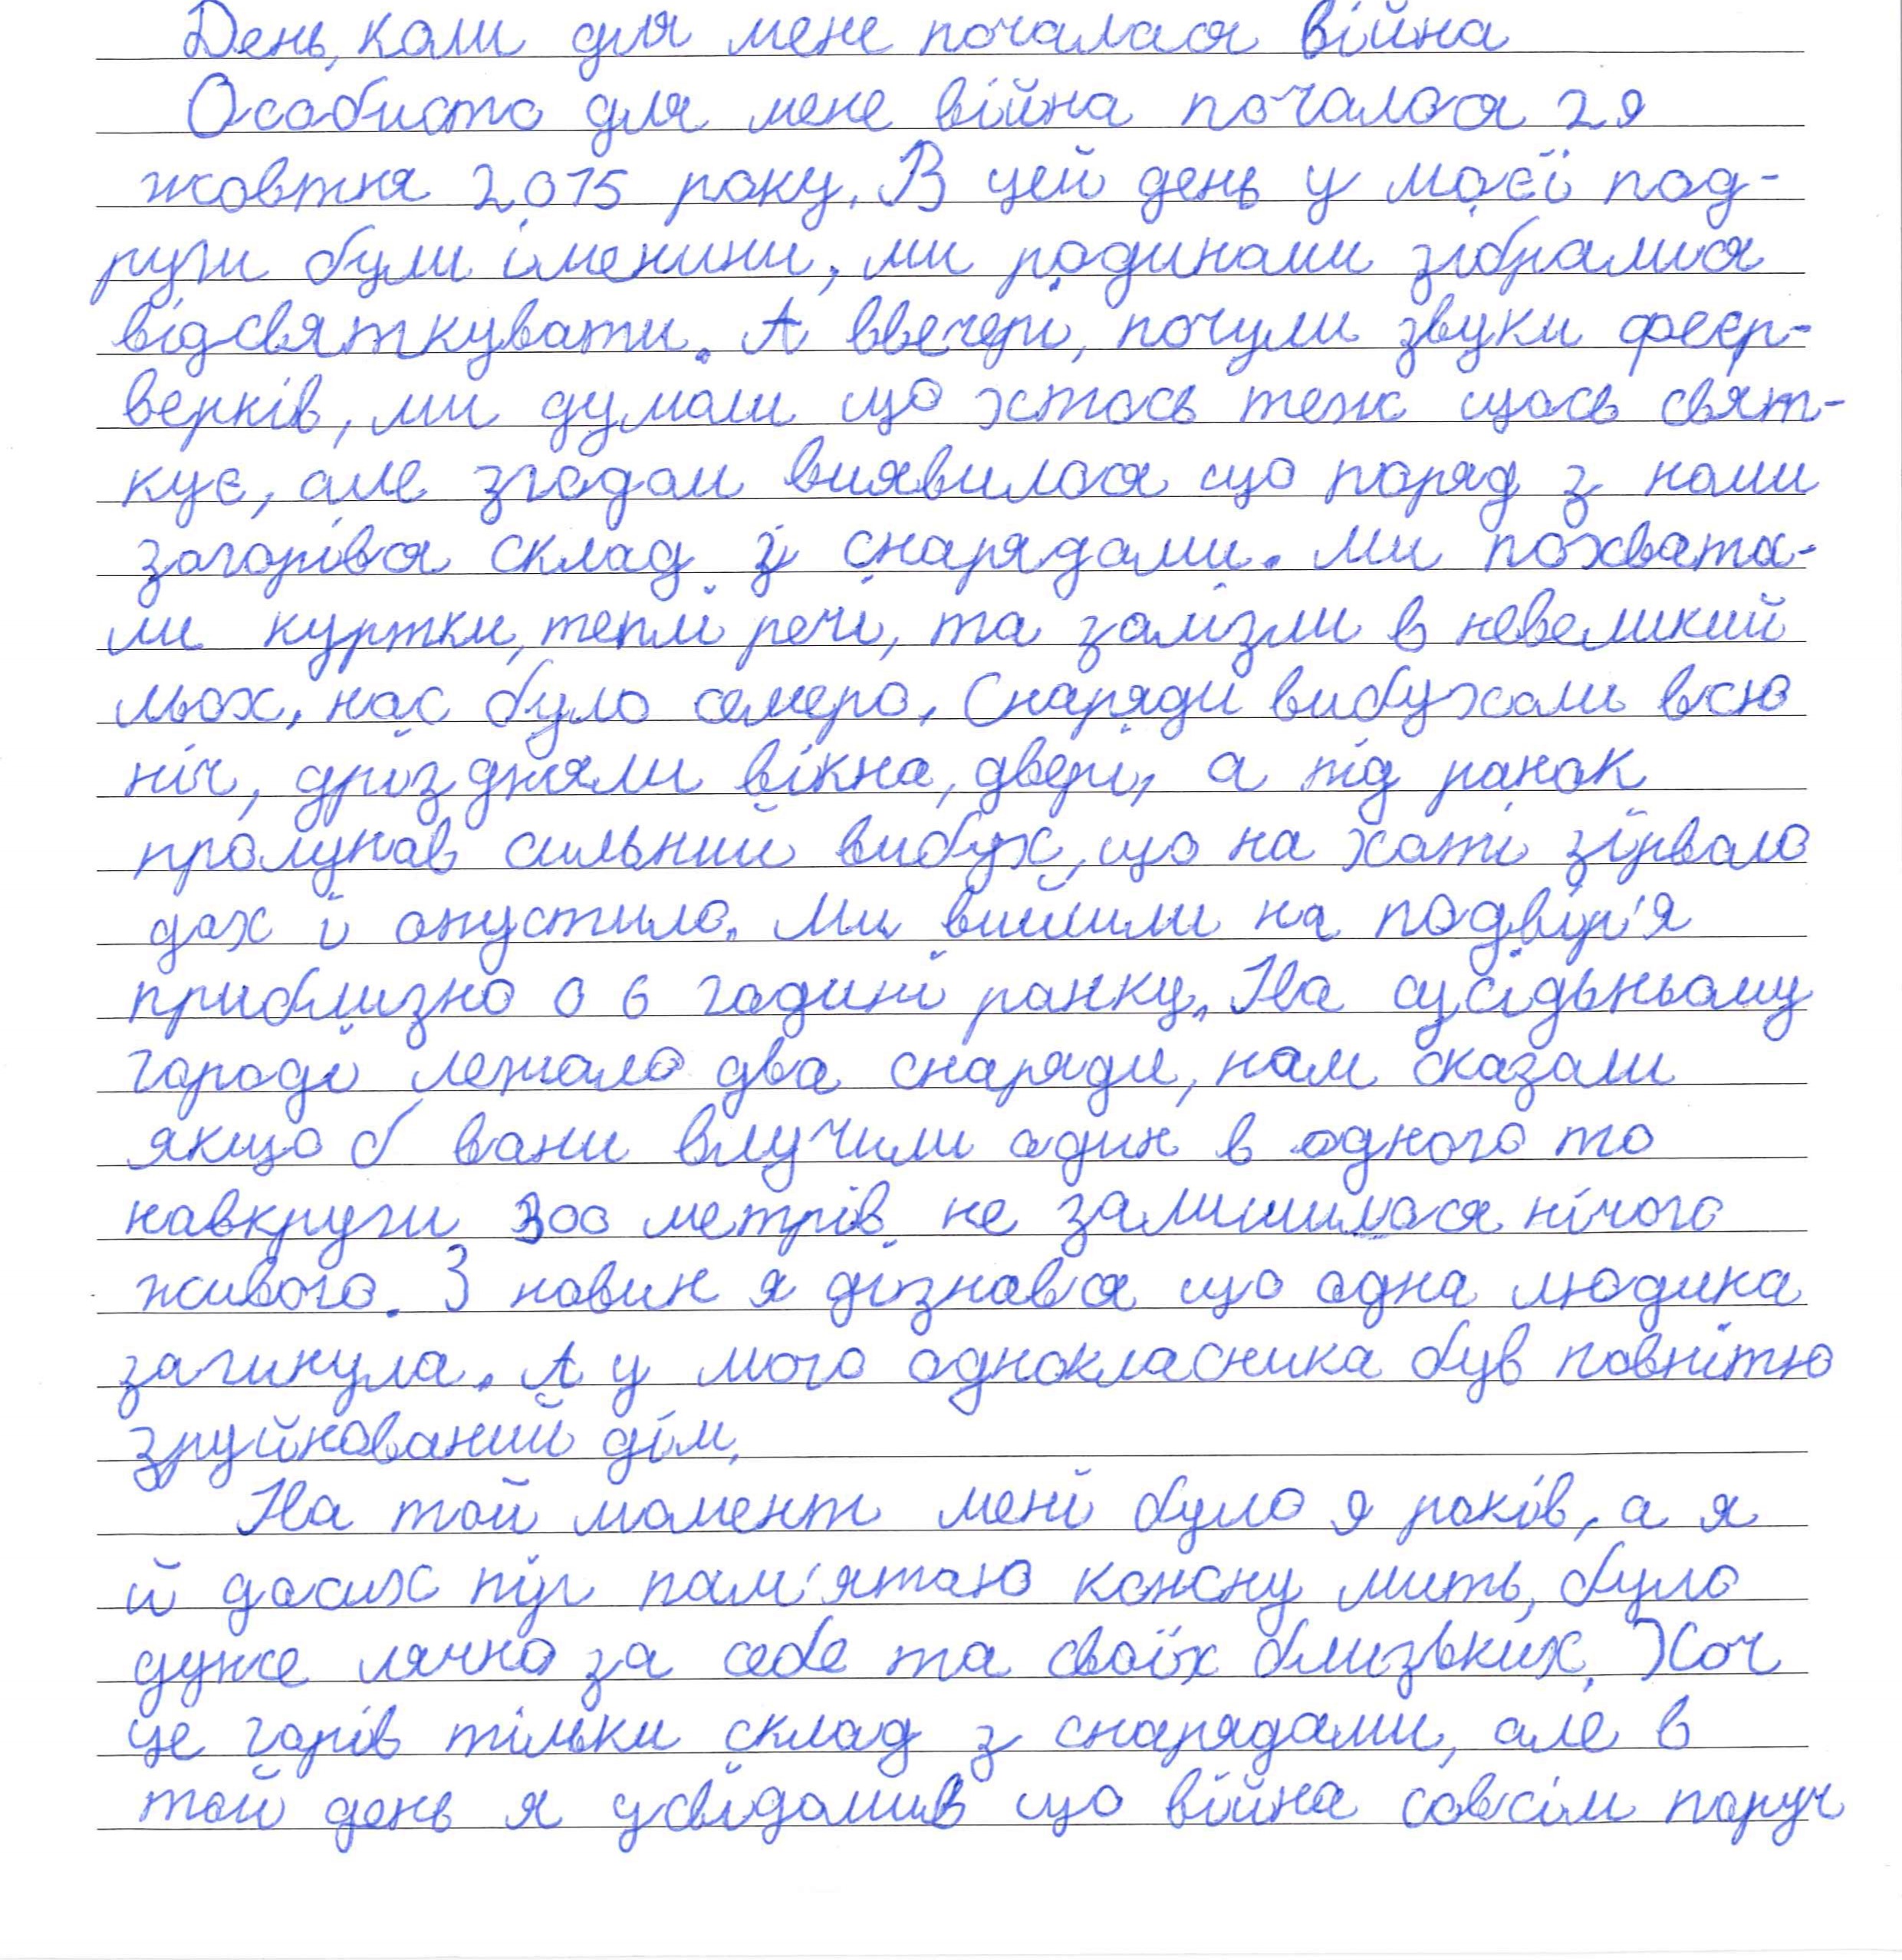 День, коли для мене почалася війна
Особисто для мене війна почалася 29
жовтня 2015 року. В цей день у моєї под-
руги були іменини, ми родинами зібралися
відсвяткувати. А ввечері, почули звуки феєр-
верків, ми думали що хтось теж щось свят-
кує, але згодом виявилося що поряд з нами
загорівся склад зі снарядами. Ми похвата-
ли куртки, теплі речі, та залізли в невеликий
льох, нас було семеро. Снаряди вибухали всю
ніч, дрізджяли вікна, двері, а під ранок
пролунав сильний вибух, що на хаті зірвало
дах й опустило. Ми вийшли на подвір'я
приблизно о 6 годині ранку. На сусідьньому
городі лежало два снаряди, нам сказали
якщо б вони влучили один в одного то
навкруги 300 метрів не залишилося нічого
живого. З новин я дізнався що одна людина
загинула. А у мого однокласника був повнітю
зруйнований дім.
На той момент мені було 9 років, а я
й досих пір пам'ятаю кожну мить, було
дуже лячно за себе та своїх близьких. Хоч
це горів тільки склад з снарядами, але в
той день я усвідомив що війна совсім поруч